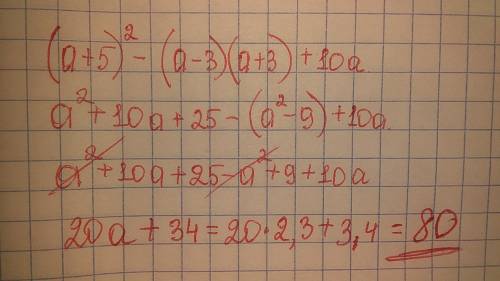 (a+5)² - (a-3)(a+3) + 10a
a² + 10a + 25 - (a² - 9) + 10a
a² + 10a + 25 - a² + 9 + 10a
20a + 34 = 20·2,3 + 3,4 = 80